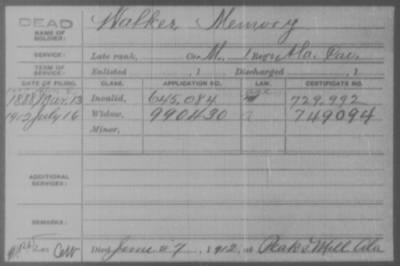 DEAD
NAME OF SOLDIER: Walker, Memory
SERVICE: Late rank, Co. M, 1 Reg't Ala. Cav.
TERM OF SERVICE: Enlisted , 1 Discharged , 1
DATE OF FILING. CLASS. APPLICATION NO. LAW. CERTIFICATE NO.
1888 Mar. 13 Invalid, 645,084 729,992
1912 July 16 Widow, 990430 749094
Minor,
ADDITIONAL SERVICES:
REMARKS:
Died June 7, 1912, at Peaks Mill Ala